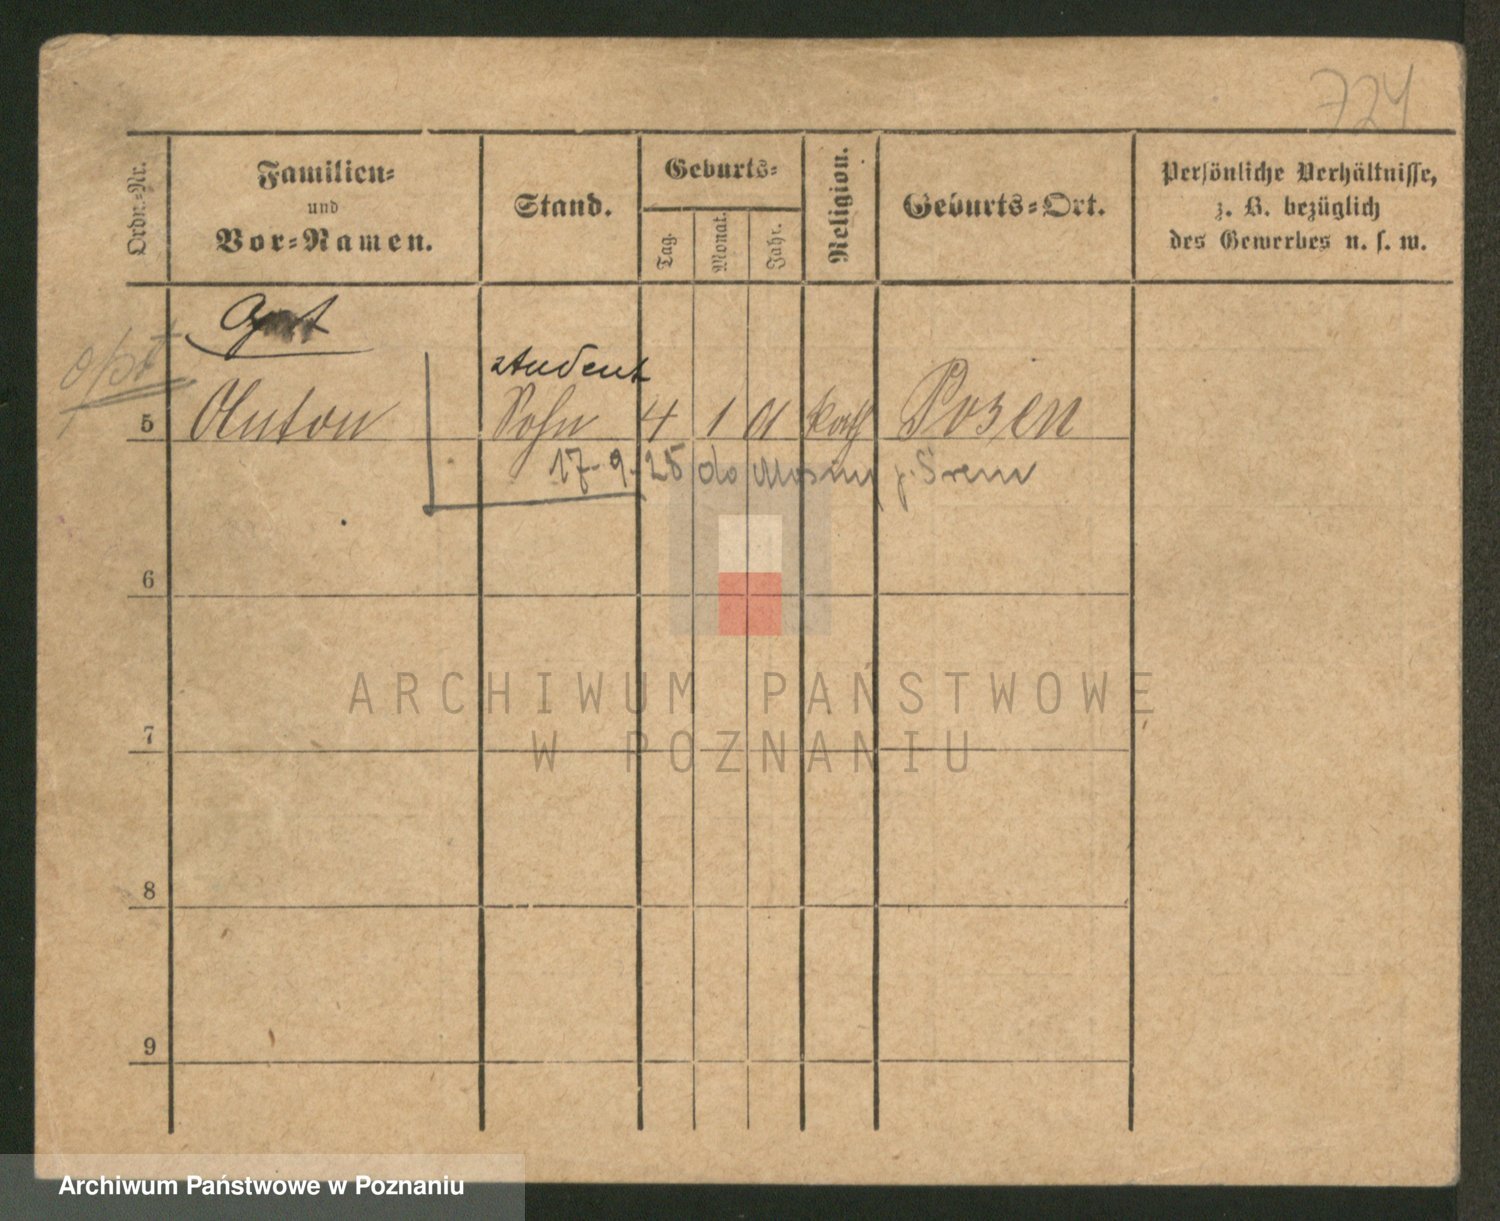 724
Ordn.-Nr.
Familien-
und
Vor-Namen.
Stand.
Geburts-
Tag.
Monat.
Jahr.
Religion.
Geburts-Ort.
Persönliche Verhältnisse,
z. B. bezüglich
des Gewerbes u. s. w.
opt
student
5 Anton Sohn 4 1 01 kath Posen
17-9-25 do Mosiny p. Śrem
6
7
8
9
ARCHIWUM PAŃSTWOWE
W POZNANIU
Archiwum Państwowe w Poznaniu